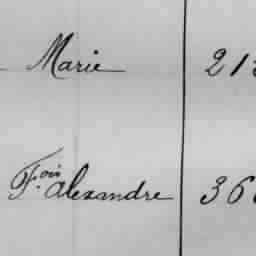 Marie 21
F.ois alexandre 36